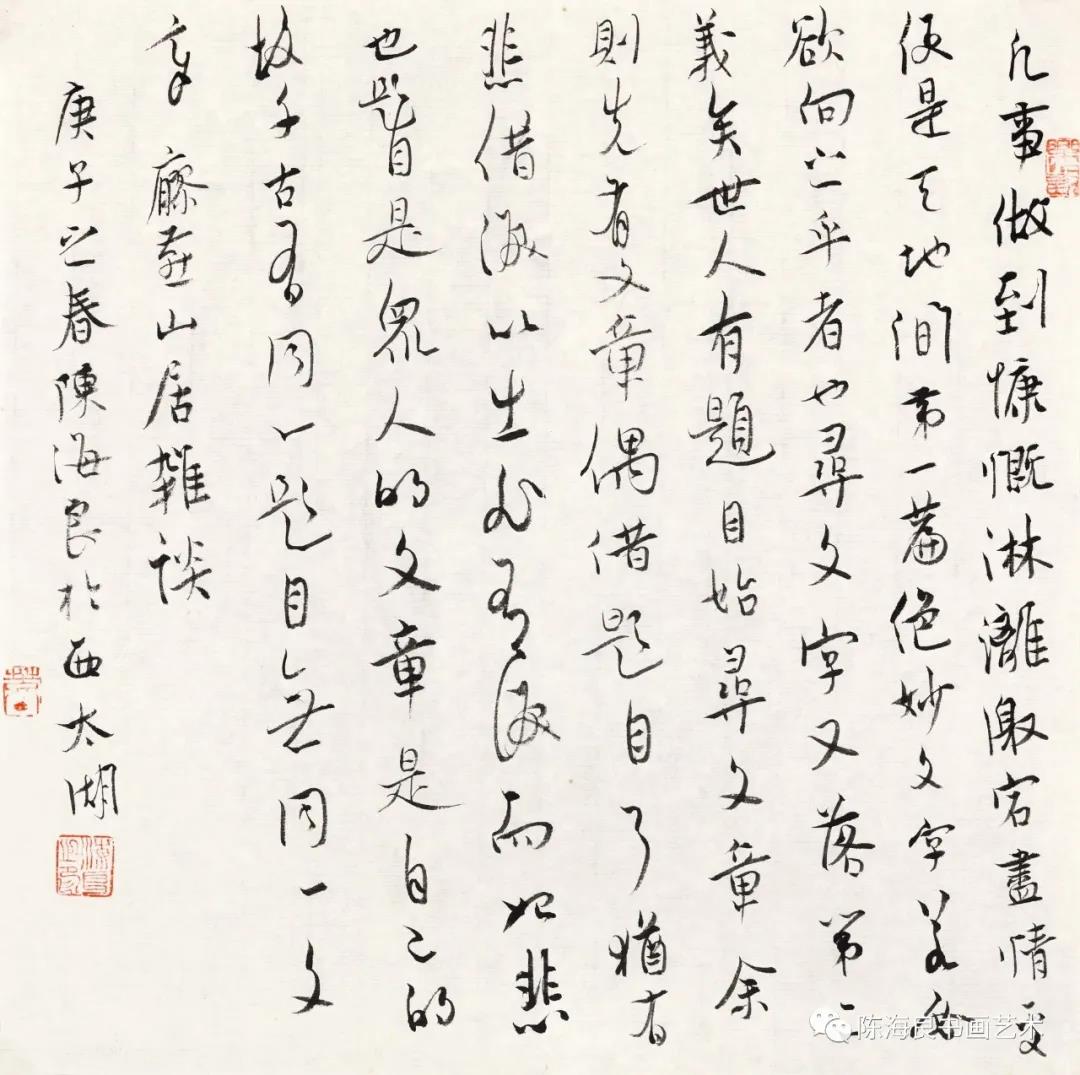 凡事做到慷慨淋漓激宕盡情處
便是天地間第一篇絕妙文字若必
欲向之乎者也尋文字又落第二
義矣世人有題目始尋文章余
則先有文章偶借題目耳猶有
悲借淚以出非有淚而始悲
也題目是眾人的文章是自己的
故千古有同一題目無同一文
章 廖燕山居雜談
庚子之春陳海良於西太湖
陈海良书画艺术